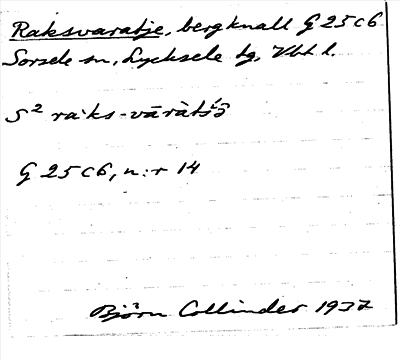 Raksvaratje, bergknall G 25 c 6
Sorsele sn, Lycksele tg, Vbtl.
S² ra·ks-vāràtśə̑
G 25 c 6, n:r 14
Björn Collinder 1937